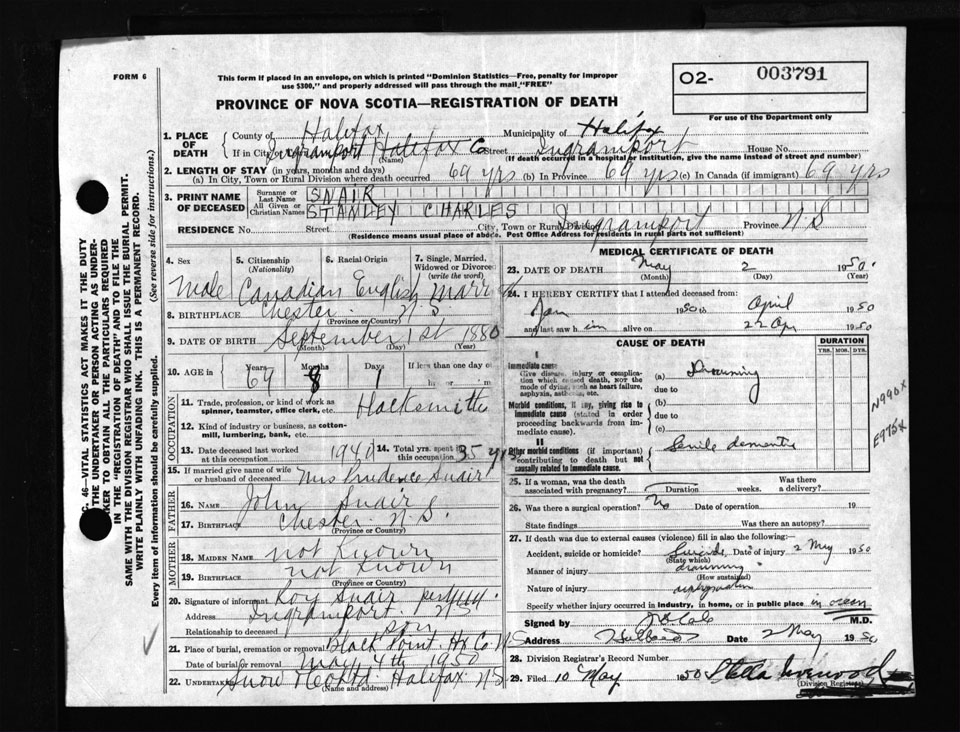 FORM 6
This form if placed in an envelope, on which is printed "Dominion Statistics—Free, penalty for improper
use $300," and properly addressed will pass through the mail "FREE"
02- 003791
For use of the Department only
PROVINCE OF NOVA SCOTIA—REGISTRATION OF DEATH
1. PLACE OF DEATH
County of Halifax Municipality of Halifax
If in City or Ingramport Halifax Co Street Ingramport House No.
(Name) (If death occurred in a hospital or institution, give the name instead of street and number)
2. LENGTH OF STAY (in years, months and days)
(a) In City, Town or Rural Division where death occurred 69 yrs (b) In Province 69 yrs (c) In Canada (if immigrant) 69 yrs
3. PRINT NAME OF DECEASED
Surname or Last Name SNAIR
All Given or Christian Names STANLEY CHARLES
RESIDENCE No. Street City, Town or Rural Division Ingramport Province N S
(Residence means usual place of abode. Post Office Address for residents in rural parts not sufficient)
4. Sex 5. Citizenship (Nationality) 6. Racial Origin 7. Single, Married, Widowed or Divorced (write the word)
Male Canadian English Married
8. BIRTHPLACE Chester N. S.
(Province or Country)
9. DATE OF BIRTH September 1st 1880
(Month) (Day) (Year)
10. AGE in Years Months Days If less than one day
69 8 1 hr. or m
OCCUPATION
11. Trade, profession, or kind of work as
spinner, teamster, office clerk, etc.
12. Kind of industry or business, as cotton-
mill, lumbering, bank, etc.
13. Date deceased last worked at this occupation 14. Total yrs. spent in this occupation 35 yrs
15. If married give name of wife or husband of deceased Mrs Prudence Snair
FATHER
16. Name John Snair
17. Birthplace Chester N.S.
(Province or Country)
MOTHER
18. Maiden Name not Known
19. Birthplace not Known
(Province or Country)
20. Signature of informant Roy Snair
Address Ingramport. N S
Relationship to deceased son
21. Place of burial, cremation or removal Black Point Hx Co N S
Date of burial or removal May 4th 1950
22. Undertaker Snow & Co Ltd. Halifax N S
(Name and address)
MEDICAL CERTIFICATE OF DEATH
23. DATE OF DEATH May 2 1950
(Month) (Day) (Year)
24. I HEREBY CERTIFY that I attended deceased from:
Jan 1950 to April 1950
and last saw him alive on 22 Apr 1950
CAUSE OF DEATH DURATION
YRS. MOS. DYS.
I
Immediate cause
Give disease, injury or complica-
tion which caused death, not the
mode of dying, such as heart failure,
asphyxia, asthenia, etc.
(a) Drowning
due to
Morbid conditions, if any, giving rise to
immediate cause (stated in order
proceeding backwards from im-
mediate cause).
(b)
due to
(c)
II
Other morbid conditions (if important)
contributing to death but not
causally related to immediate cause.
Senile dementia
N990X
E975X
25. If a woman, was the death associated with pregnancy? Duration Was there a delivery?
26. Was there a surgical operation? No Date of operation 19
State findings Was there an autopsy?
27. If death was due to external causes (violence) fill in also the following:
Accident, suicide or homicide? Suicide Date of injury 2 May 1950
(State which)
Manner of injury drowning
(How sustained)
Nature of injury asphyxiation
Specify whether injury occurred in industry, in home, or in public place in ocean
Signed by M.D.
Address Date 2 May 1950
28. Division Registrar's Record Number
29. Filed 10 May 1950 Stella
(Division Registrar)
C. 46—VITAL STATISTICS ACT MAKES IT THE DUTY
THE UNDERTAKER OR PERSON ACTING AS UNDER-
KER TO OBTAIN ALL THE PARTICULARS REQUIRED
IN THE "REGISTRATION OF DEATH" AND TO FILE THE
SAME WITH THE DIVISION REGISTRAR WHO SHALL ISSUE THE BURIAL PERMIT.
WRITE PLAINLY WITH UNFADING INK. THIS IS A PERMANENT RECORD.
Every item of information should be carefully supplied. (See reverse side for instructions.)